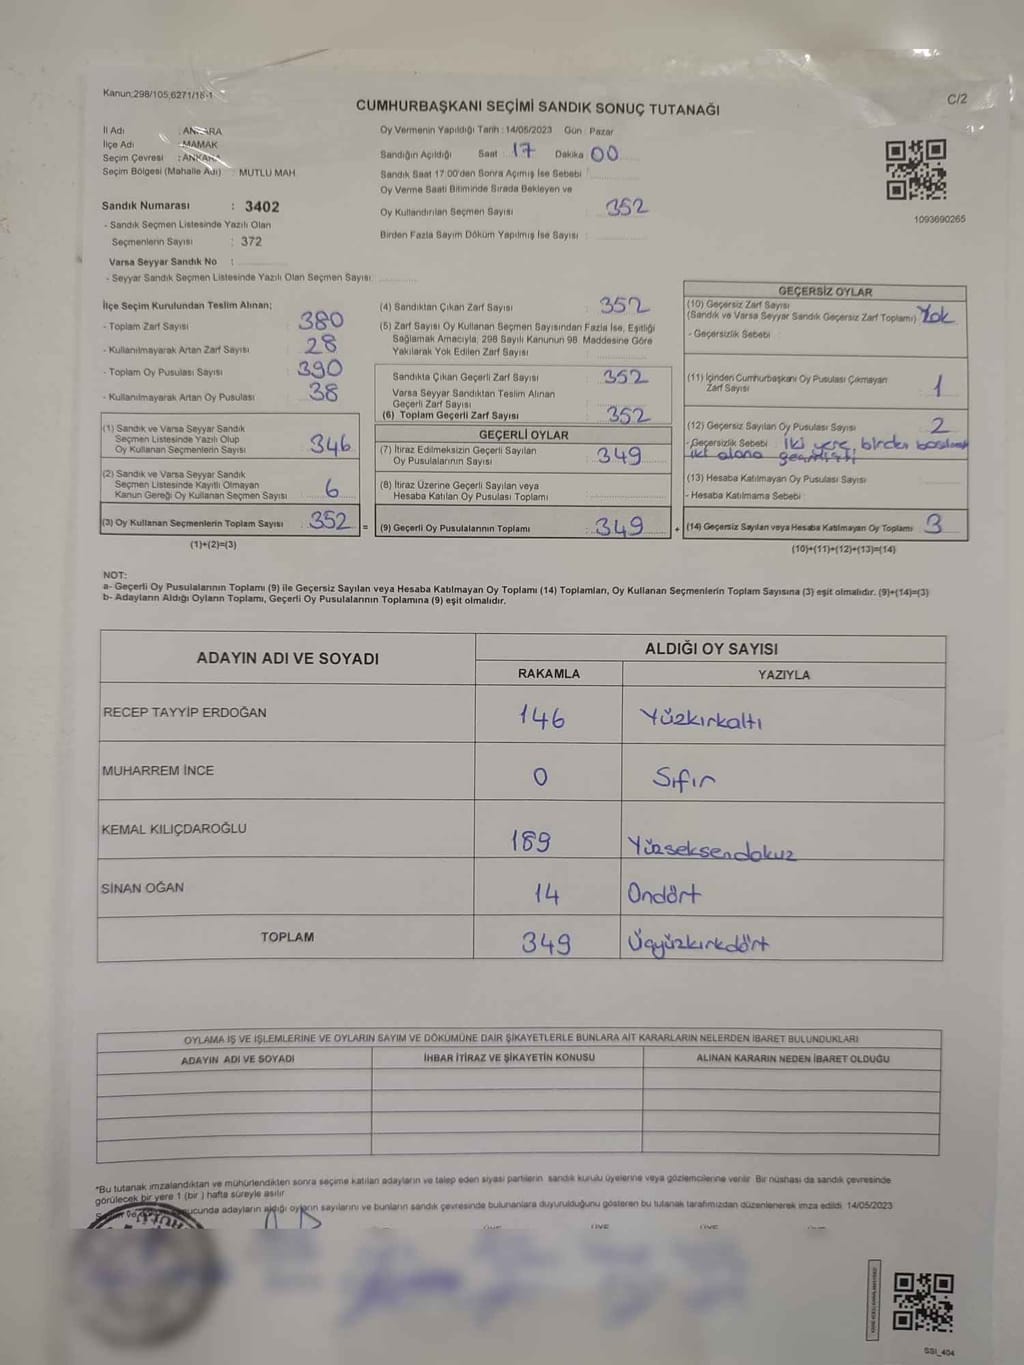 Kanun;298/105,6271/18-1
C/2
CUMHURBAŞKANI SEÇİMİ SANDIK SONUÇ TUTANAĞI
İl Adı : ANKARA
İlçe Adı : MAMAK
Seçim Çevresi : ANKARA
Seçim Bölgesi (Mahalle Adı) : MUTLU MAH
Oy Vermenin Yapıldığı Tarih : 14/05/2023 Gün : Pazar
Sandığın Açıldığı Saat : 17 Dakika : 00
Sandık Saat 17:00'den Sonra Açımış İse Sebebi :
Oy Verme Saati Bitiminde Sırada Bekleyen ve
Oy Kullandırılan Seçmen Sayısı : 352
Birden Fazla Sayım Döküm Yapılmış İse Sayısı :
1093690265
Sandık Numarası : 3402
- Sandık Seçmen Listesinde Yazılı Olan
Seçmenlerin Sayısı : 372
Varsa Seyyar Sandık No :
- Seyyar Sandık Seçmen Listesinde Yazılı Olan Seçmen Sayısı:
İlçe Seçim Kurulundan Teslim Alınan;
- Toplam Zarf Sayısı : 380
- Kullanılmayarak Artan Zarf Sayısı : 28
- Toplam Oy Pusulası Sayısı : 390
- Kullanılmayarak Artan Oy Pusulası : 38
(1) Sandık ve Varsa Seyyar Sandık
Seçmen Listesinde Yazılı Olup
Oy Kullanan Seçmenlerin Sayısı : 346
(2) Sandık ve Varsa Seyyar Sandık
Seçmen Listesinde Kayıtlı Olmayan
Kanun Gereği Oy Kullanan Seçmen Sayısı : 6
(3) Oy Kullanan Seçmenlerin Toplam Sayısı : 352 =
(1)+(2)=(3)
(4) Sandıktan Çıkan Zarf Sayısı : 352
(5) Zarf Sayısı Oy Kullanan Seçmen Sayısından Fazla İse, Eşitliği
Sağlamak Amacıyla, 298 Sayılı Kanunun 98 Maddesine Göre
Yakılarak Yok Edilen Zarf Sayısı :
Sandıkta Çıkan Geçerli Zarf Sayısı : 352
Varsa Seyyar Sandıktan Teslim Alınan
Geçerli Zarf Sayısı :
(6) Toplam Geçerli Zarf Sayısı : 352
GEÇERLİ OYLAR
(7) İtiraz Edilmeksizin Geçerli Sayılan
Oy Pusulasının Sayısı : 349
(8) İtiraz Üzerine Geçerli Sayılan veya
Hesaba Katılan Oy Pusulası Toplamı :
(9) Geçerli Oy Pusulalarının Toplamı : 349 +
GEÇERSİZ OYLAR
(10) Geçersiz Zarf Sayısı
(Sandık ve Varsa Seyyar Sandık Geçersiz Zarf Toplamı) : Yok
- Geçersizlik Sebebi :
(11) İçinden Cumhurbaşkanı Oy Pusulası Çıkmayan
Zarf Sayısı : 1
(12) Geçersiz Sayılan Oy Pusulası Sayısı : 2
- Geçersizlik Sebebi : iki yere birden basılmak
iki alana
(13) Hesaba Katılmayan Oy Pusulası Sayısı :
- Hesaba Katılmama Sebebi :
(14) Geçersiz Sayılan veya Hesaba Katılmayan Oy Toplamı : 3
(10)+(11)+(12)+(13)=(14)
NOT:
a- Geçerli Oy Pusulalarının Toplamı (9) ile Geçersiz Sayılan veya Hesaba Katılmayan Oy Toplamı (14) Toplamları, Oy Kullanan Seçmenlerin Toplam Sayısına (3) eşit olmalıdır. (9)+(14)=(3)
b- Adayların Aldığı Oyların Toplamı, Geçerli Oy Pusulalarının Toplamına (9) eşit olmalıdır.
ADAYIN ADI VE SOYADI
ALDIĞI OY SAYISI
RAKAMLA YAZIYLA
RECEP TAYYİP ERDOĞAN 146 Yüzkırkaltı
MUHARREM İNCE 0 Sıfır
KEMAL KILIÇDAROĞLU 189 Yüzseksendokuz
SİNAN OĞAN 14 Ondört
TOPLAM 349 Üçyüzkırkdört
OYLAMA İŞ VE İŞLEMLERİNE VE OYLARIN SAYIM VE DÖKÜMÜNE DAİR ŞİKAYETLERLE BUNLARA AİT KARARLARIN NELERDEN İBARET BULUNDUKLARI
ADAYIN ADI VE SOYADI İHBAR İTİRAZ VE ŞİKAYETİN KONUSU ALINAN KARARIN NEDEN İBARET OLDUĞU
*Bu tutanak imzalandıktan ve mühürlendikten sonra seçime katılan adayların ve talep eden siyasi partilerin sandık kurulu üyelerine veya gözlemcilerine verilir. Bir nüshası da sandık çevresinde
görülecek bir yere 1 (bir ) hafta süreyle asılır
ucunda adayların aldığı oyların sayılarını ve bunların sandık çevresinde bulunanlara duyurulduğunu gösteren bu tutanak tarafımızdan düzenlenerek imza edildi. 14/05/2023
ÜYE ÜYE ÜYE
SSI_404